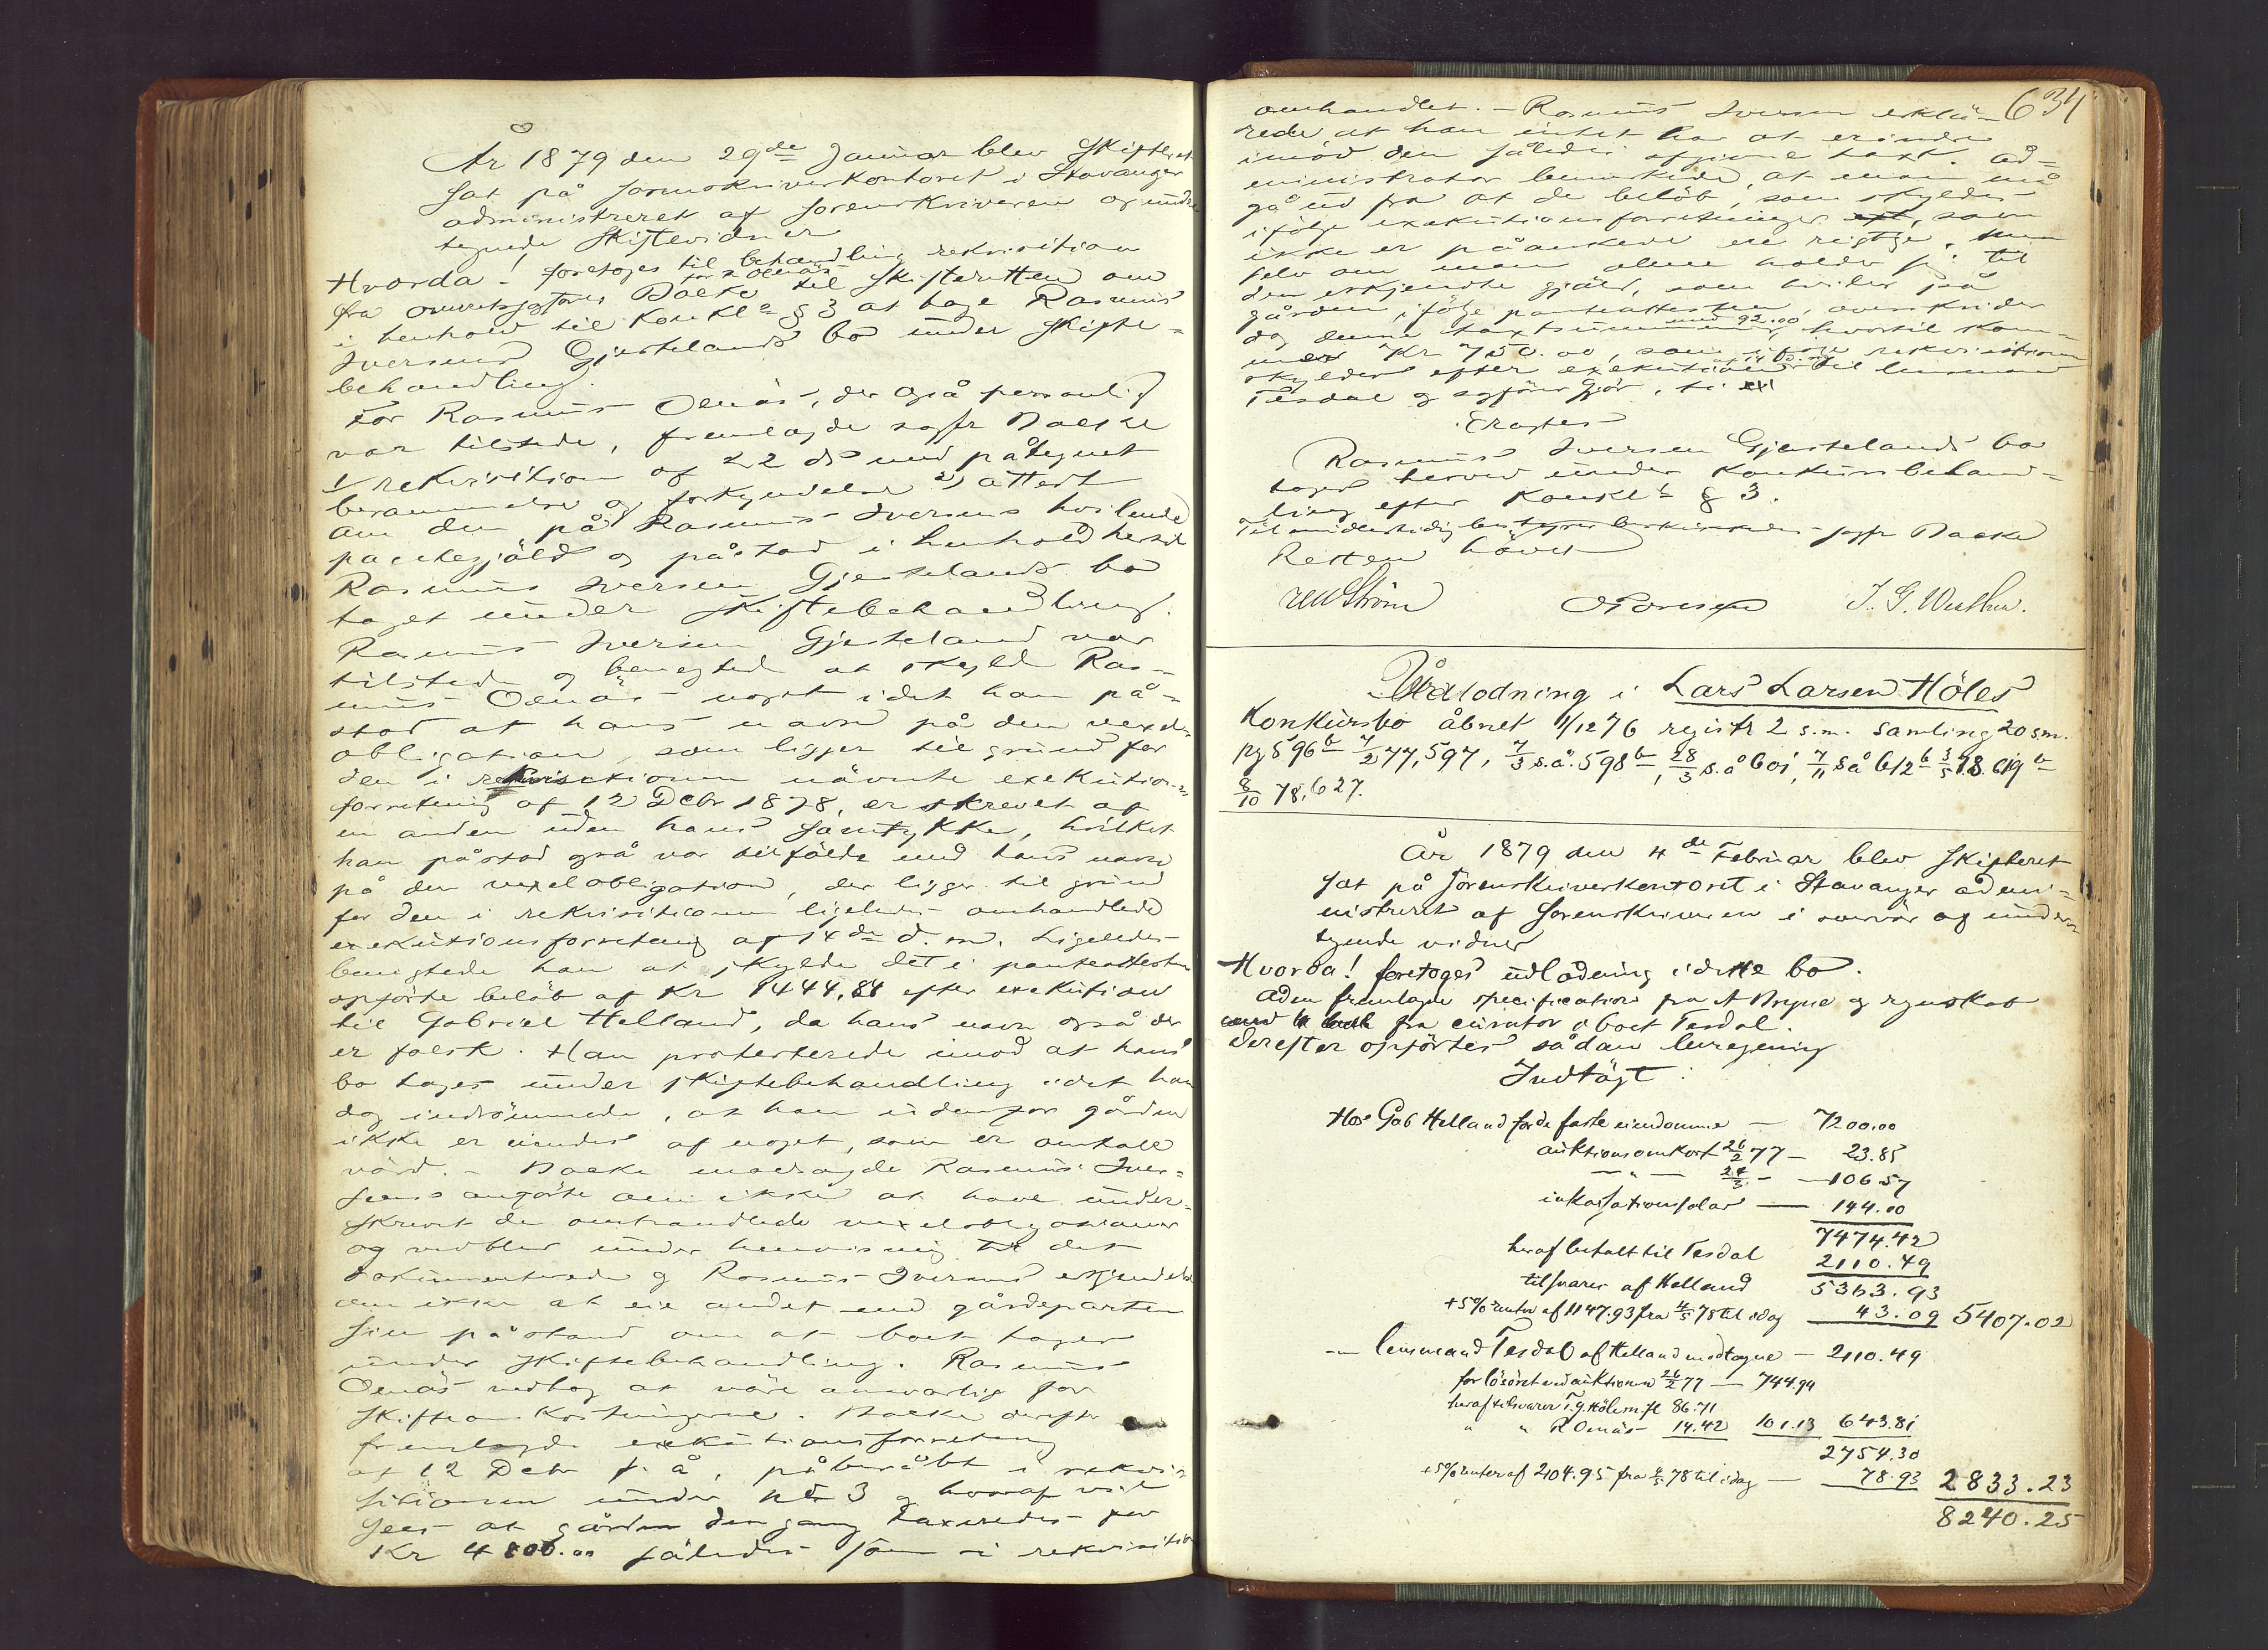 År 1879 den 29de Januar blev Skifteret
sat på sorenskriverkontoret i Stavanger
administreret af sorenskriveren og under
tegnede Skiftevidner
Hvorda! foretoges til behandling rekvisition
fra overretssagfører Backe for R Oenäs til Skifteretten om
i henhold til Konkl § 3 at tage Rasmus
Iversens Gjestelands bo under skifte-
behandling.
For Rasmus Oenäs, der også personlig
var tilstede, fremlagde sagfr Backe
1/ rekvisition af 22 ds med påtegnet
berammelse og forkyndelse 2) attest
om den på Rasmus Iversens hvilende
pantegjäld og påstod i henhold hertil
Rasmus Iversen Gjestelands bo
taget under Skiftebehandling.
Rasmus Iversen Gjesteland var
tilstede og benegted at skylde Ras-
mus Oenäs noget idet han på-
stod at hans navn på den vexel-
obligation, som ligger til grund for
den i rekvisitionen nävnte exekutions
forretning af 12 Decbr 1878, er skrevet af
en anden uden hans samtykke, hvilket
han påstod også var tilfälde med hans navn
på den vexelobligation, der ligger til grund
for den i rekvisitionen ligeledes omhandlede
exekutionsforretning af 14de d. m. Ligeledes
benegtede han at skylde det i panteattesten
opförte belöb af Kr 1444,84 efter exekution
til Gabriel Helland, da hans navn også der
er falsk. Han protesterede imod at hans
bo tages under skiftebehandling idet han
dog indrömmede, at han udenfor gården
ikke er eiendes af noget, som er omtale
värd. - Backe modsagde Rasmus Iver-
sens anförte om ikke at have under-
skrevet de omhandlede vexelobligationer
og vedblev under henvisning til det
dokumenterede og Rasmus Iversens erkjendelse
om ikke at eie andet end gårdeparten
sin påstand om at boet tages
under skiftebehandling. Rasmus
Oenäs vedtog at väre ansvarlig for
skifteomkostningerne. Backe derefter
fremlagde exekutionsforretning
af 12 Decbr f. å, påberåbt i rekvi-
sitionen under No 3 og hvoraf vil
sees at gården dengang taxeredes for
Kr 4800.00 således som i rekvisition
634
omhandlet. - Rasmus Iversen erklä-
rede at han intet har at erindre
imod den således afgivne taxt. Ad-
ministrator bemerkede, at man må
gå ud fra at de belöb, som skyldes
ifölge exekutionsforretninger, som
ikke er påankede ere rigtige. Men
selv om man alene holder sig til
den erkjendte gjäld, som hviler på
gården, ifölge panteattesten, overskrider
dog denne taxtsummen med 92.00, hvortil kom-
mer Kr 750.00, som ifölge rekvisitionen
skyldes efter exekution af 14 ds til lensmand
Tesdal og sagförer Gjör, ti
Eragtes
Rasmus Iversen Gjestelands bo
tages herved under konkursbehand-
ling efter Konkl § 3.
Til midlertidig bestyrer beskikkedes sagfr Backe
Retten hävet
J. G. Westhen.
Udlodning i Lars Larsen Höles
Konkursbo åbnet 11/12 76 registr 2 s.m. samling 20 s.m.
pg 596b 7/2 77, 597, 7/3 s.å. 598b, 28/3 s.å 601, 7/11 så 612b 3/5 78. 619b
8/10 78, 627.
År 1879 den 4de Februar blev Skifteret
sat på sorenskriverkontoret i Stavanger admi-
nistreret af sorenskriveren i overvär af under
tegnede vidner
Hvorda! foretoges udlodning i dette bo.
Aden fremlagde specification fra A Bryne og regnskab
fra curator i boet Tesdal.
Derefter opförtes sådan beregning
Indtägt:
Hos Gab Helland for de faste eiendomme - 7200.00
auktionsomkost 26/2 77 - 23.85
- " - 24/3 - - 106.57
inkassationssalar - 144.00
7474.42
heraf betalt til Tesdal 2110.49
tilsvares af Helland 5363.93
+5% renter af 1147.93 fra 4/5 78 til idag 43.09 5407.02
- lensmand Tesdal af Helland modtagne - 2110.49
for lösöret ved auktionen 26/2 77 - 744.94
heraf tilsvarer T. G. Höle m.fl 86.71
" " R Oenäs 14.42 101.13 643.81
2754.30
+5% renter af 2104.95 fra 4/5 78 til idag - 78.93 2833.23
8240.25